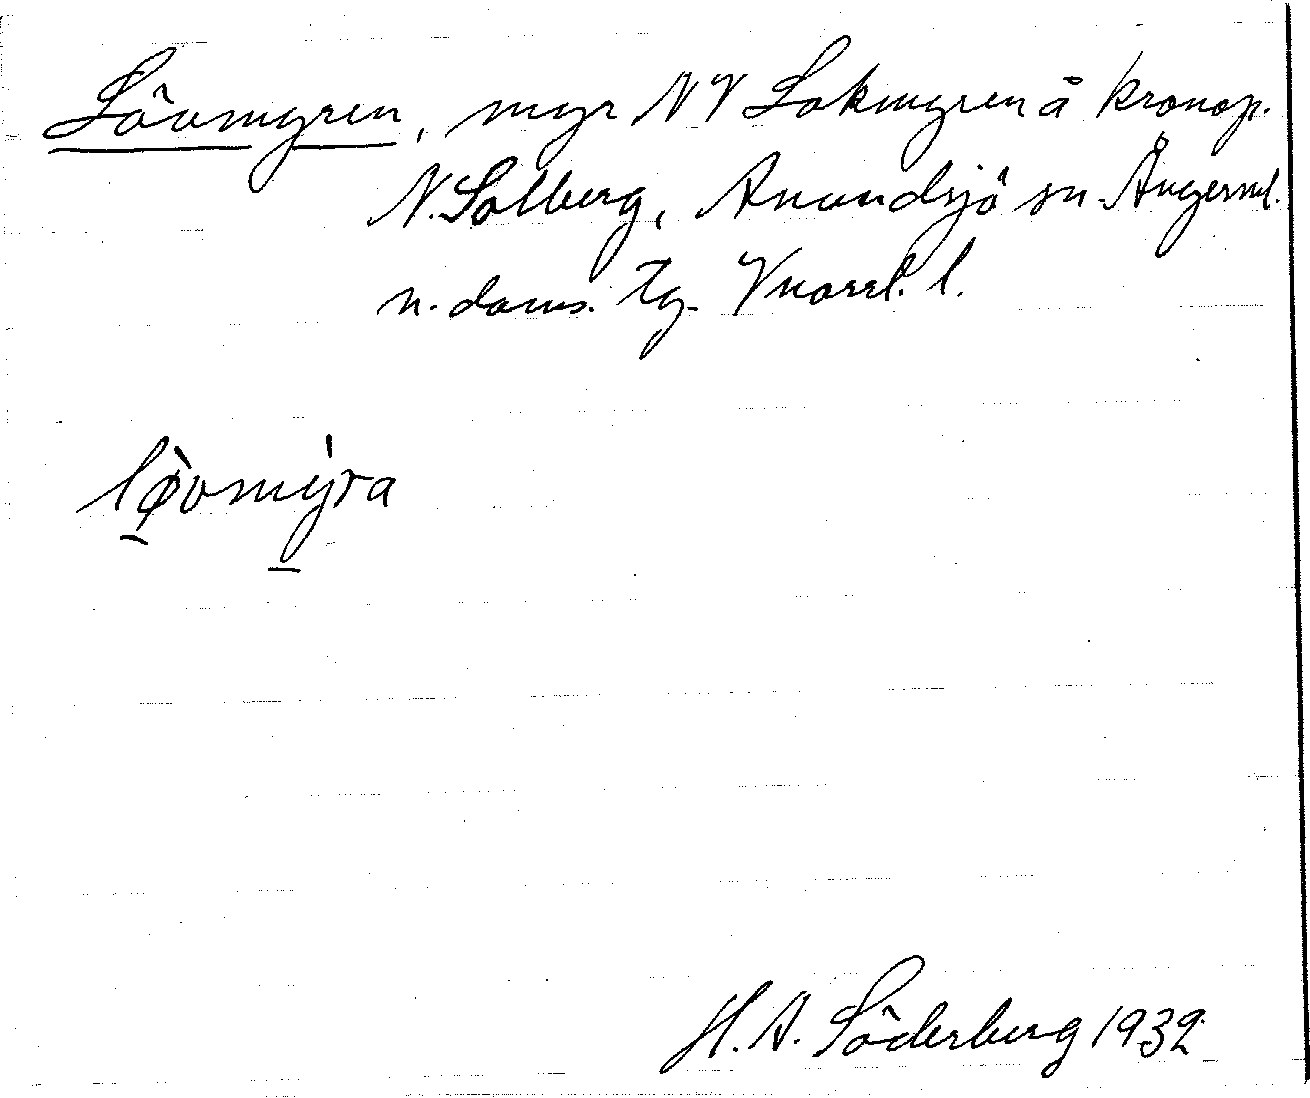 Lövmyren, myr NV Lokmyren å kronop.
N. Solberg, Anundsjö sn. Ångerml.
n. doms. Tg.
lø̀vmýra
H. A. Söderberg 1932